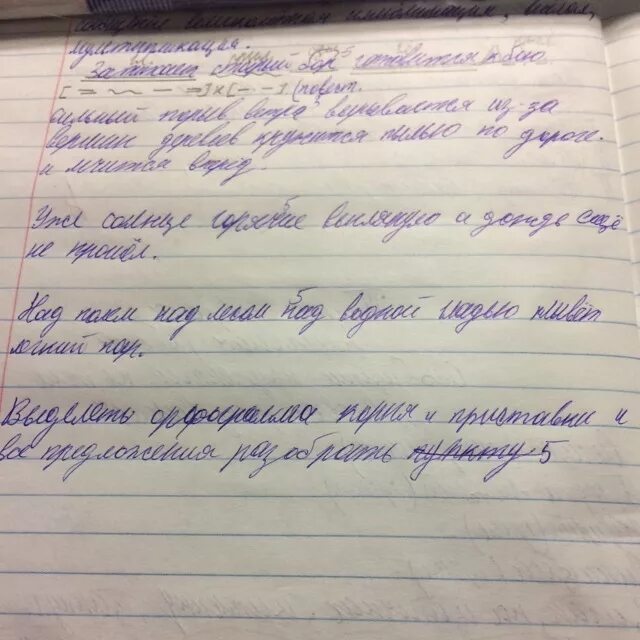 мультипликация.
Затихает бор готовится к бою
[= ~ – =] х [– –] (повест.
сильный порыв ветра врывается из-за
вершин деревьев кружится пылью по дороге.
и мчится вперёд.
Уже солнце горячие выглянуло а дождь ещё
не прошёл.
Над полем над лесом над водной гладью плывёт
лёгкий пар.
Выделеть орфограмма корня и приставки и
все предложения разобрать пункту 5